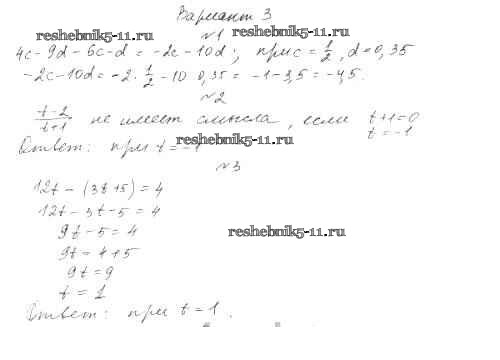 Вариант 3
reshebnik5-11.ru
№1
reshebnik5-11.ru
4c-9d-6c-d=-2c-10d; при c=1/2, d=0,35
-2c-10d=-2·1/2-10·0,35=-1-3,5=-4,5.
№2
t-2/t+1 не имеет смысла, если t+1=0
t=-1
Ответ: при t=-1
reshebnik5-11.ru
№3
12t-(3t+5)=4
12t-3t-5=4
9t-5=4
reshebnik5-11.ru
9t=4+5
9t=9
t=1
Ответ: при t=1.